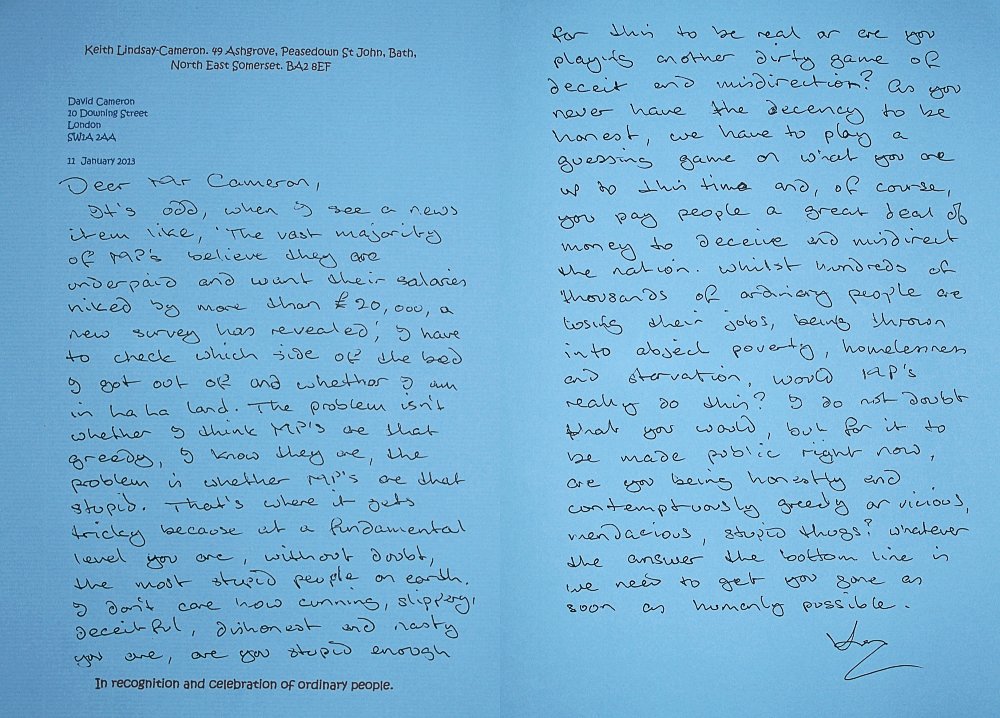 Keith Lindsay-Cameron. 49 Ashgrove, Peasedown St John, Bath,
North East Somerset. BA2 8EF
David Cameron
10 Downing Street
London
SW1A 2AA
11 January 2013
Dear Mr Cameron,
It's odd, when I see a news
item like, 'The vast majority
of MP's believe they are
underpaid and want their salaries
hiked by more than £20,000, a
new survey has revealed', I have
to check which side of the bed
I got out of and whether I am
in ha ha land. The problem isn't
whether I think MP's are that
greedy, I know they are, the
problem is whether MP's are that
stupid. That's where it gets
tricky because at a fundamental
level you are, without doubt,
the most stupid people on earth.
I don't care how cunning, slippery,
deceitful, dishonest and nasty
you are, are you stupid enough
In recognition and celebration of ordinary people.
for this to be real or are you
playing another dirty game of
deceit and misdirection? As you
never have the decency to be
honest, we have to play a
guessing game on what you are
up to this time and, of course,
you pay people a great deal of
money to deceive and misdirect
the nation. Whilst hundreds of
thousands of ordinary people are
losing their jobs, being thrown
into abject poverty, homelessness
and starvation, would MP's
really do this? I do not doubt
that you would, but for it to
be made public right now,
are you being honestly and
contemptuously greedy or vicious,
mendacious, stupid thugs? Whatever
the answer the bottom line is
we need to get you gone as
soon as humanly possible.